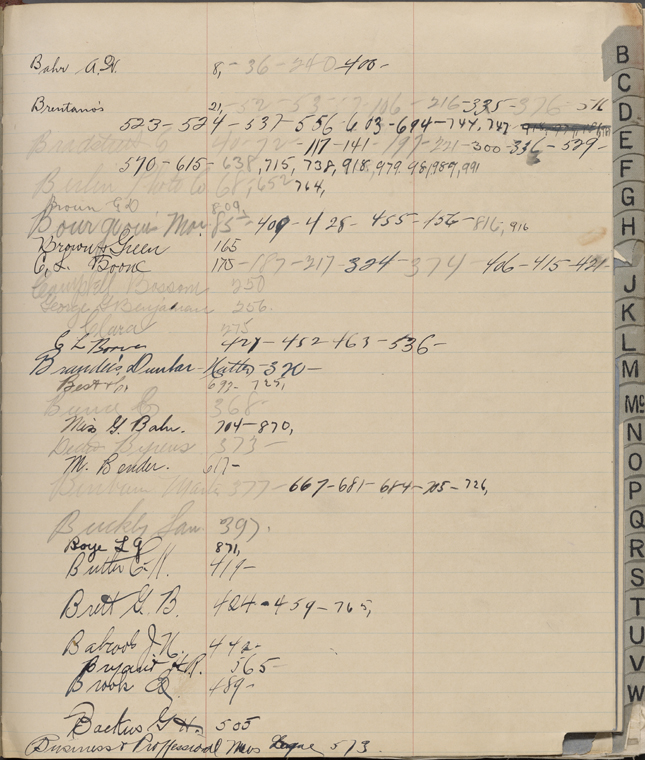 Bahr A.H. 8, - 36 - 240 - 400 -
Brentano's 21, - 52 - 53 - 57 - 106 - 216 - 335 - 376 - 516
523 - 524 - 537 - 556 - 603 - 694 - 747, 747
Co 40 - 72 - 117 - 141 - 197 - 221 - 300 - 336 - 529 -
570 - 615 - 638, 715, 738, 918, 979, 981, 989, 991
Berlin Photo Co 68, 652 764,
Brown G D 809,
85 - 409 - 428 - 455 - 156 - 816, 916
Brown & Green 165
E. L. Boone 175 - 187 - 217 - 324 - 374 - 406 - 415 - 421 -
Campbell Bosson 250
George Benjamin 256.
Clara 275
E L Boone 421 - 452 - 463 - 536 -
Brandeis, Dunbar - 320 -
Best 699 - 725,
368 -
Miss G. Bahr. 704 - 870,
373 -
M. Bender. 617 -
377 - 667 - 681 - 684 - 705 - 726,
Buckley 397.
Boye L G 871,
Butler E. K. 419 -
Brett G. B. 424 - 459 - 765,
Babcock J. H. 442 -
Bryant H. R. 565 -
Brook 489 -
Backus G. H. 505
Business & Professional 573.
B
C
D
E
F
G
H
J
K
L
M
Mc
N
O
P
Q
R
S
T
U
V
W